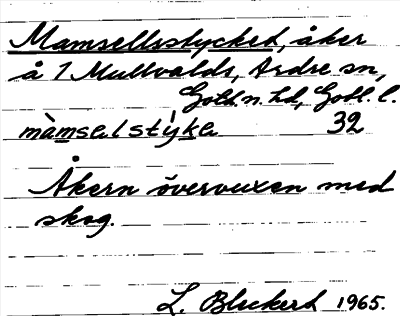 Mamsellsstycket, åker
å 1 Mullvalds, Ardre sn,
Gotl. n. hd, Gotl. l.
màmsəlstýkə 32
Åkern övervuxen med
skog.
L. 1965.